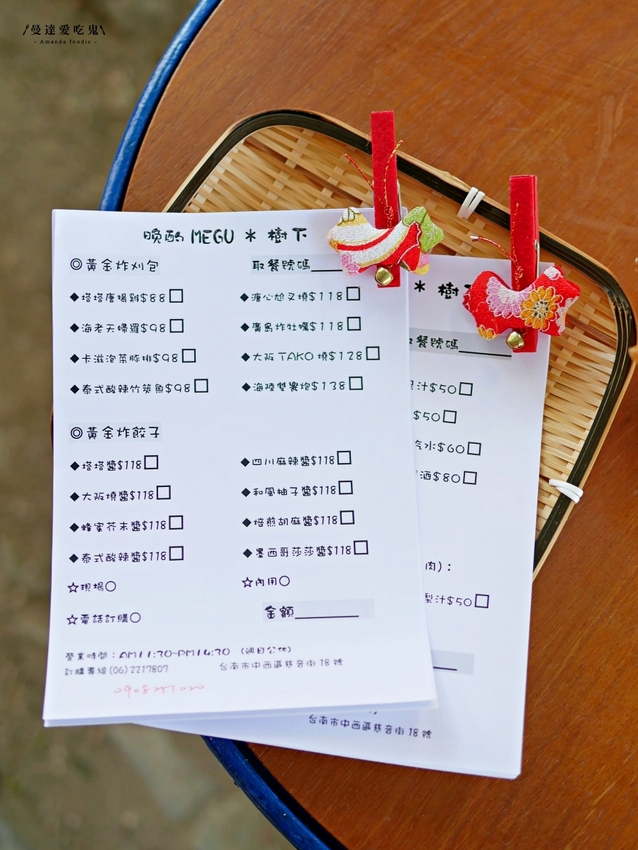 \曼達愛吃鬼\
- Amanda foodie -
晚酌 MEGU * 樹下
◎黃金炸刈包 取餐號碼
◆塔塔唐揚雞$88□ ◆溏心尬叉燒$118□
◆海老天婦羅$98□ ◆廣島炸牡蠣$118□
◆卡滋泡菜豚排$98□ ◆大阪TAKO燒$128□
◆泰式酸辣竹筴魚$98□ ◆海陸雙寶抱$138□
◎黃金炸餃子
◆塔塔醬$118□ ◆四川麻辣醬$118□
◆大阪燒醬$118□ ◆和風柚子醬$118□
◆蜂蜜芥末醬$118□ ◆焙煎胡麻醬$118□
◆泰式酸辣醬$118□ ◆墨西哥莎莎醬$118□
☆現場○ ☆內用○
☆電話訂購○ 金額
營業時間：AM11:30-PM14:30 （週日公休）
訂購專線(06)2217807 台南市中西區慈音街18號
* 樹下
餐號碼
汁$50□
$50□
水$60□
酒$80□
肉)：
梨汁$50□
台南市中西區慈音街18號